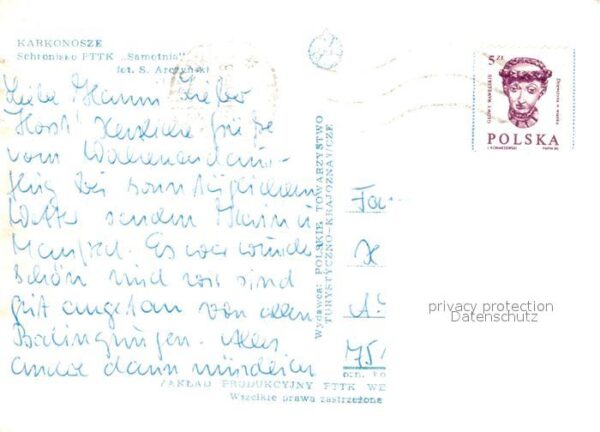 KARKONOSZE
Schronisko PTTK „Samotnia”
fot. S. Arczyński
Liebe Hanni Lieber
Horst! Herzliche Grüße
vom Wochenendaus-
flug bei
Wetter senden
Manfred. Es war wunder
schön und wir sind
gut angetan von allen
Bedingungen. Alles
andere dann mündlich
Wydawca: POLSKIE TOWARZYSTWO
TURYSTYCZNO-KRAJOZNAWCZE
Fa
A
75
ZAKŁAD PRODUKCYJNY PTTK WE
Wszelkie prawa zastrzeżone
5 ZŁ
GŁOWY WAWELSKIE
POLSKA
privacy protection
Datenschutz